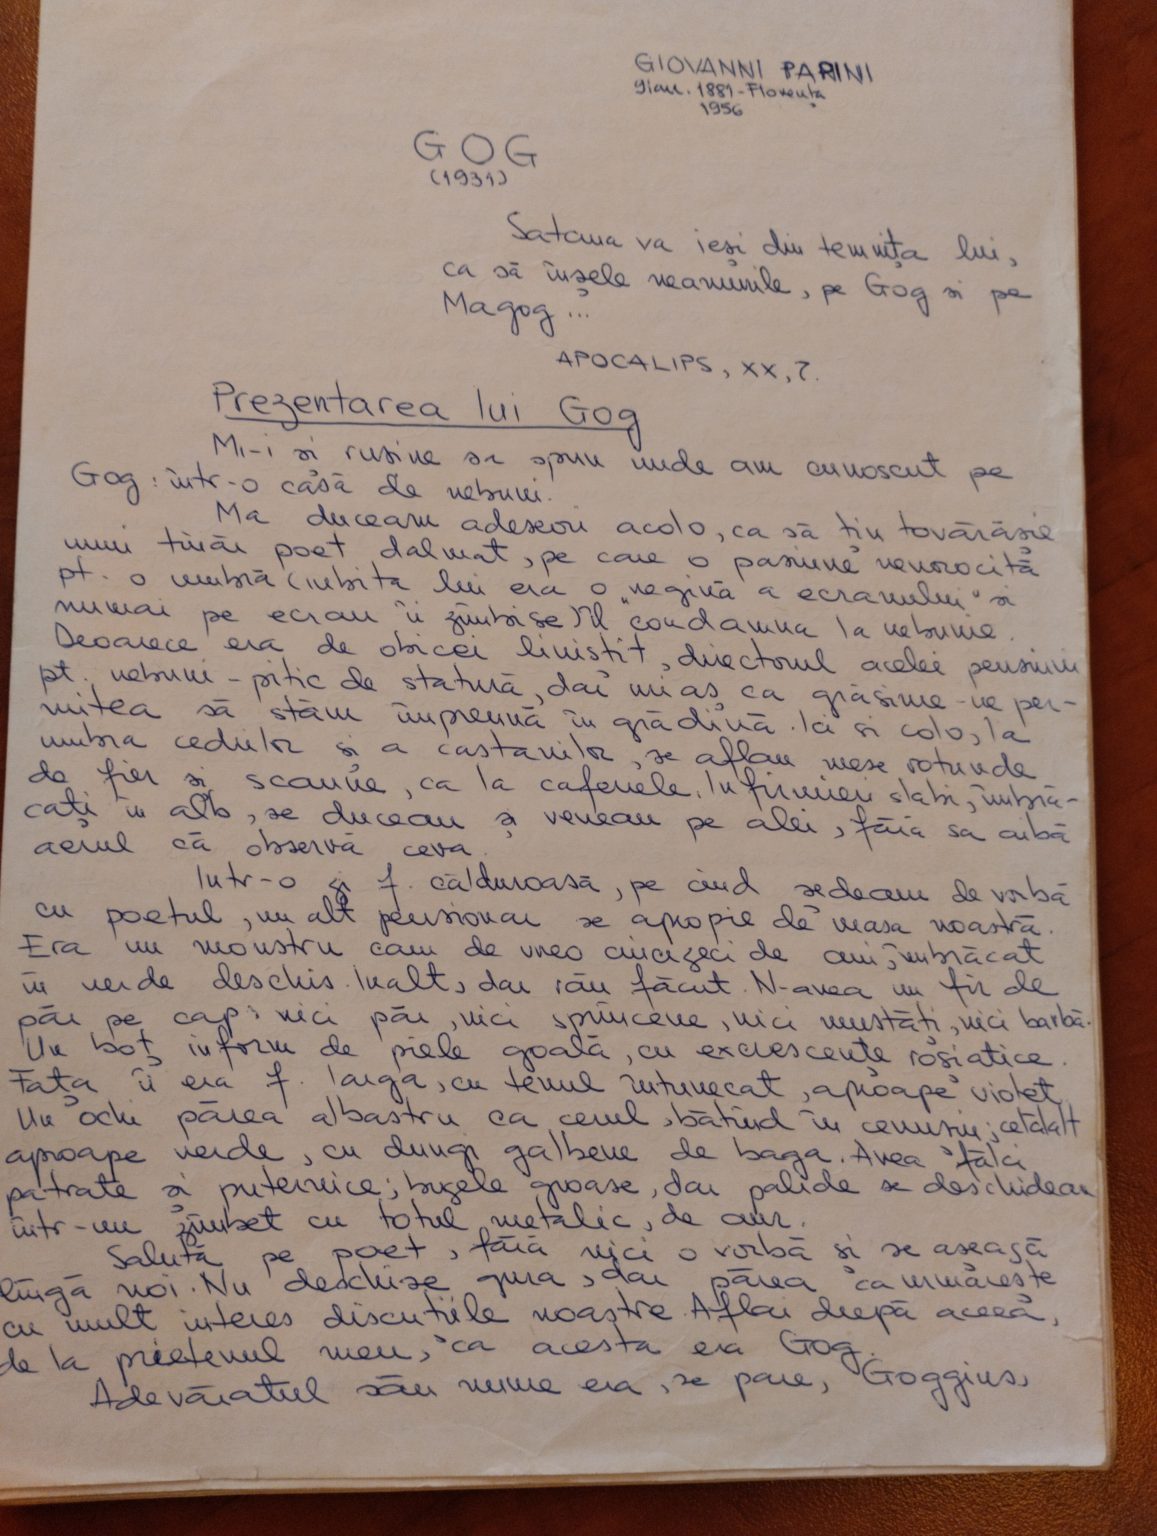 GIOVANNI PARINI
9 ian. 1881 - Florența
1956
GOG
(1931)
Satana va ieși din temnița lui,
ca să înșele neamurile, pe Gog și pe
Magog...
APOCALIPS, XX, 7.
Prezentarea lui Gog
Mi-i și rușine să spun unde am cunoscut pe
Gog: într-o casă de nebuni.
Mă duceam adeseori acolo, ca să țin tovărășie
unui tînăr poet dalmat, pe care o pasiune nenorocită
pt. o umbră (iubita lui era o „regină a ecranului" și
numai pe ecran îi zîmbise) îl condamna la nebunie.
Deoarece era de obicei liniștit, directorul acelei pensiuni
pt. nebuni - pitic de statură, dar uriaș ca grăsime - ne per-
mitea să stăm împreună în grădină. Ici și colo, la
umbra cedrilor și a castanilor, se aflau mese rotunde
de fier și scaune, ca la cafenele. Infirmieri slabi, îmbră-
cați în alb, se duceau și veneau pe alei, fără să aibă
aerul că observă ceva.
Într-o zi f. călduroasă, pe cînd ședeam de vorbă
cu poetul, un alt pensionar se apropie de masa noastră.
Era un monstru cam de vreo cincizeci de ani, îmbrăcat
în verde deschis. Înalt, dar rău făcut. N-avea un fir de
păr pe cap: nici păr, nici sprîncene, nici mustăți, nici barbă.
Un boț inform de piele goală, cu excrescențe roșiatice.
Fața îi era f. largă, cu tenul întunecat, aproape violet.
Un ochi părea albastru ca cerul, bătînd în cenușiu; celălalt
aproape verde, cu dungi galbene de baga. Avea fălci
pătrate și puternice; buzele groase, dar palide se deschideau
într-un zîmbet cu totul metalic, de aur.
Salută pe poet, fără nici o vorbă și se așează
lîngă noi. Nu deschise gura, dar părea că urmărește
cu mult interes discuțiile noastre. Aflai după aceea,
de la prietenul meu, că acesta era Gog.
Adevăratul său nume era, se pare, Goggins,